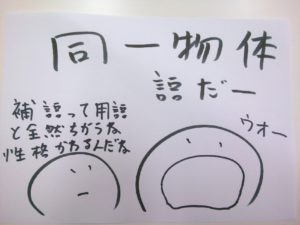 同一物体
語だー
補語って用語
と全然ちがうな
性格かわるんだな
ウオー